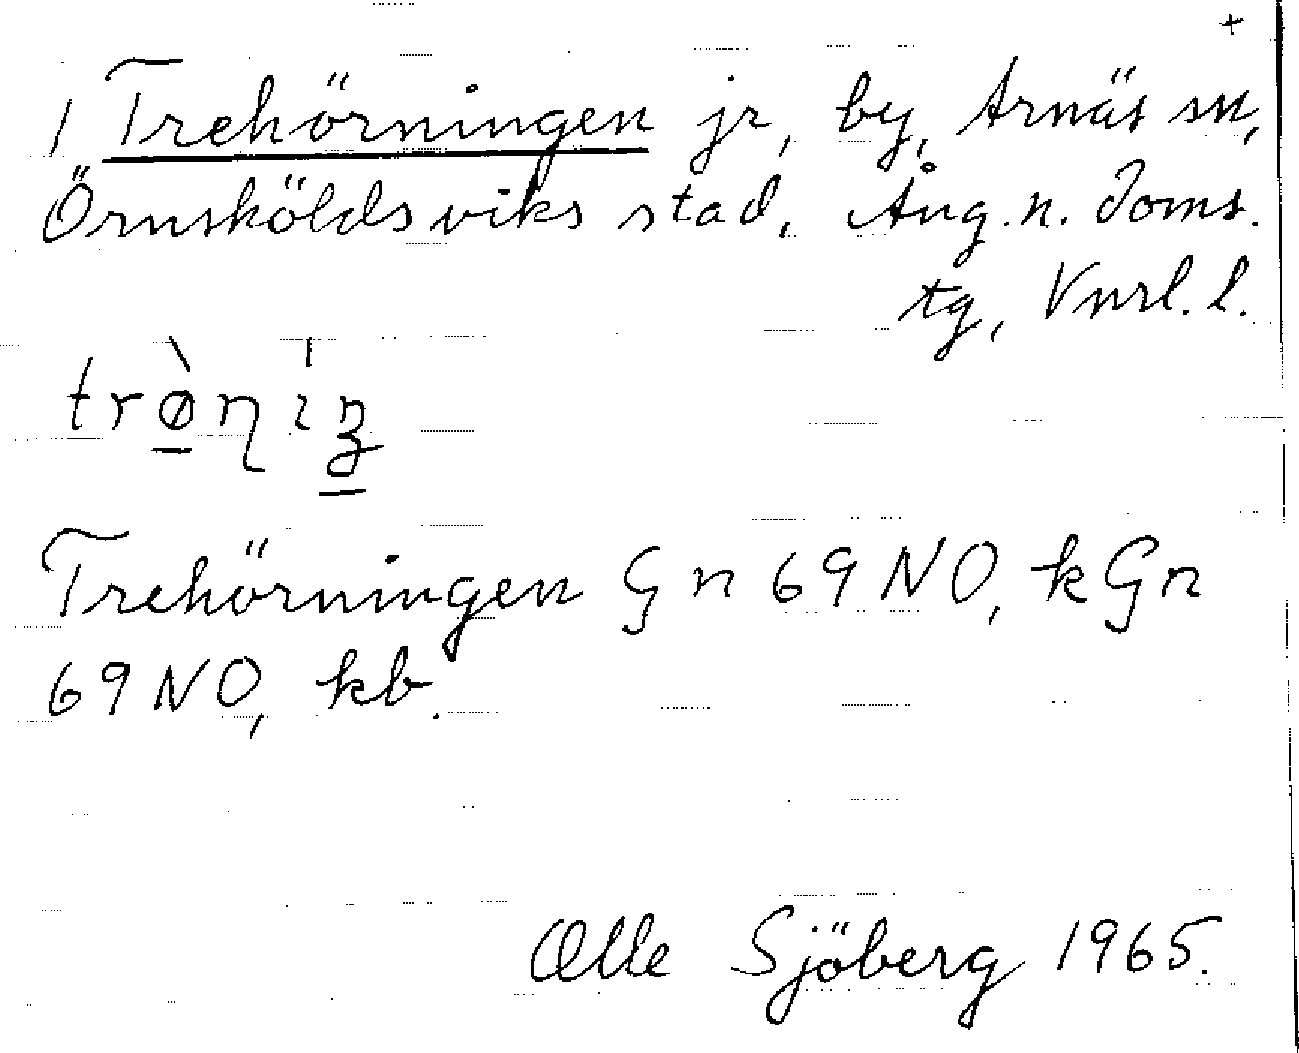 +
1 Trehörningen jr, by, Arnäs sn,
Örnsköldsviks stad, Ång. n. doms.
tg, Vnrl. l.
Trehörningen G n 69 NO, k G n
69 NO, kb.
Olle Sjöberg 1965.